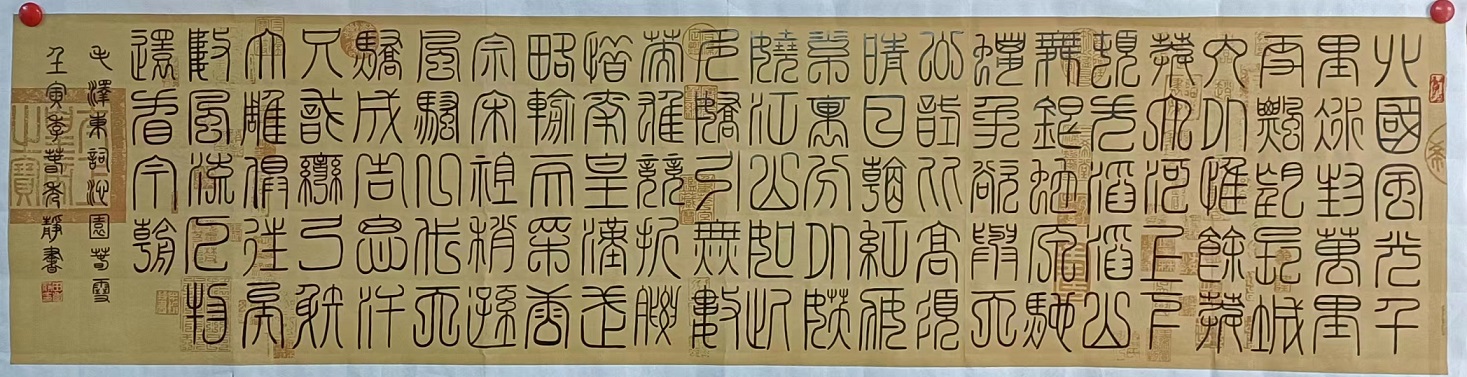 北國風光千
里冰封萬里
雪飄望長城
內外惟餘莽
莽大河上下
頓失滔滔山
舞銀蛇原馳
蠟象欲與天
公試比高須
晴日看紅裝
素裹分外妖
嬈江山如此
多嬌引無數
英雄競折腰
惜秦皇漢武
略輸文采唐
宗宋祖稍遜
風騷一代天
驕成吉思汗
只識彎弓射
大雕俱往矣
數風流人物
還看今朝
毛澤東詞沁園春雪
壬寅季春秀靜書